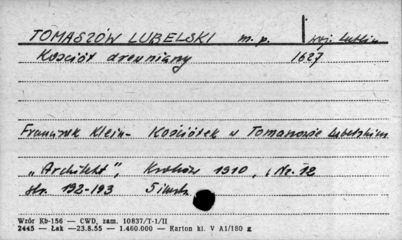 TOMASZÓW LUBELSKI m. p. woj. lublin
Kościół drewniany 1627
Franciszek Klein - Kościółek w Tomaszowie Lubelskim
"Architekt", Kraków 1910, Nr. 12
str. 192-193
Wzór Kb-156 — CWD, zam. 10837/T-1/II
2445 — Łak — 23.8.55 — 1.460.000 — Karton kl. V A1/180 g